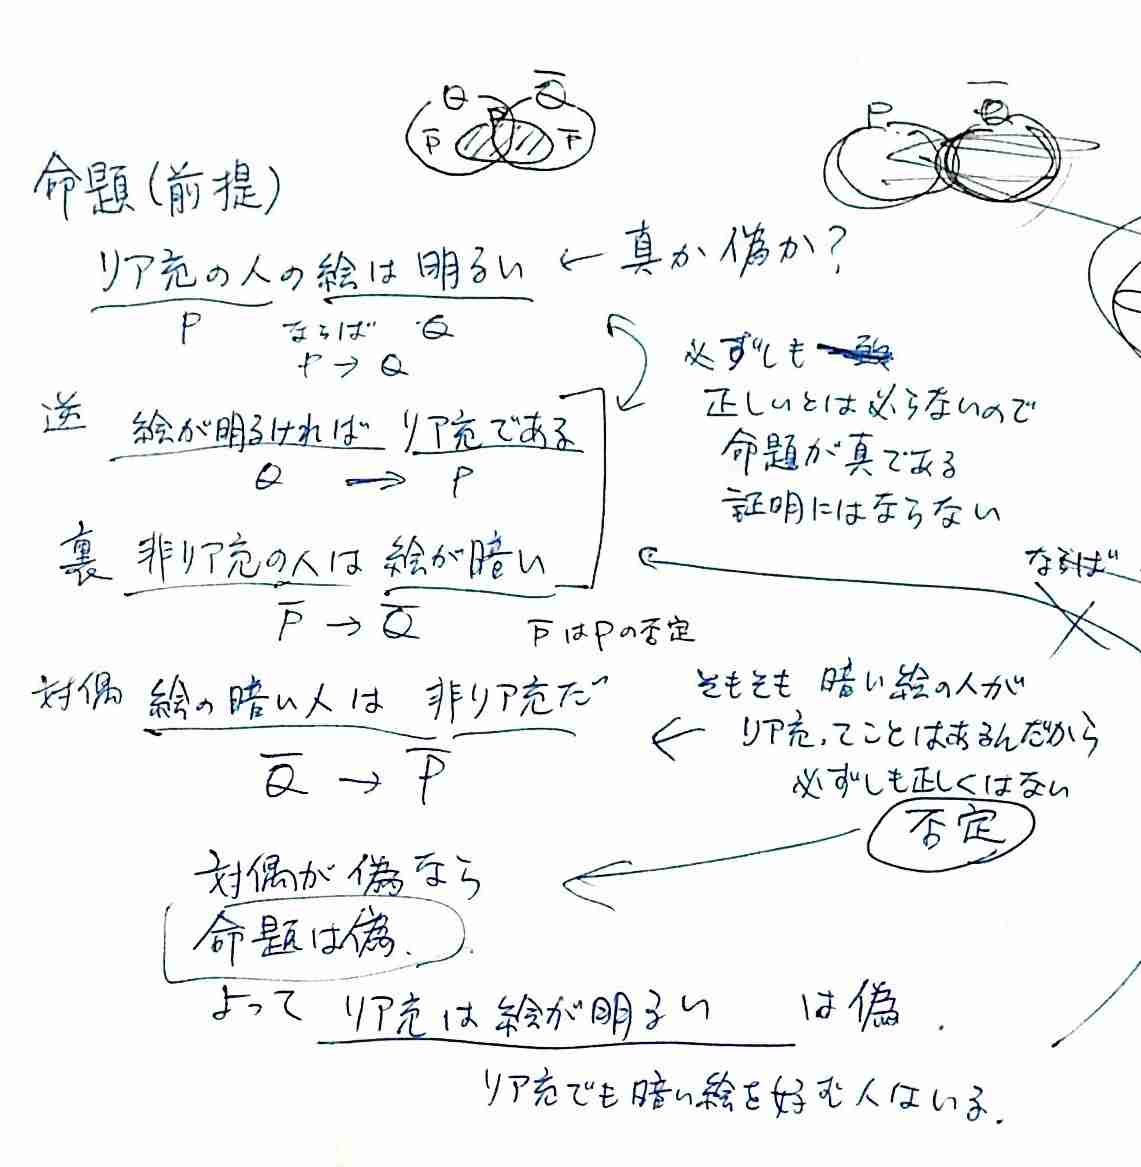 Q Q̄
P̄ P P̄
P Q̄
命題(前提)
リア充の人の絵は明るい ← 真か偽か?
P ならば Q
P → Q
必ずしも
正しいとは必らないので
命題が真である
証明にはならない
逆 絵が明るければ リア充である
Q → P
裏 非リア充の人は 絵が暗い
P̄ → Q̄
P̄はPの否定
ならば
対偶 絵の暗い人は 非リア充だ
Q̄ → P̄
← そもそも 暗い絵の人が
リア充ってことはあるんだから
必ずしも正しくはない
否定
対偶が偽なら
命題は偽.
よって リア充は絵が明るい は偽.
リア充でも暗い絵を好む人はいる.